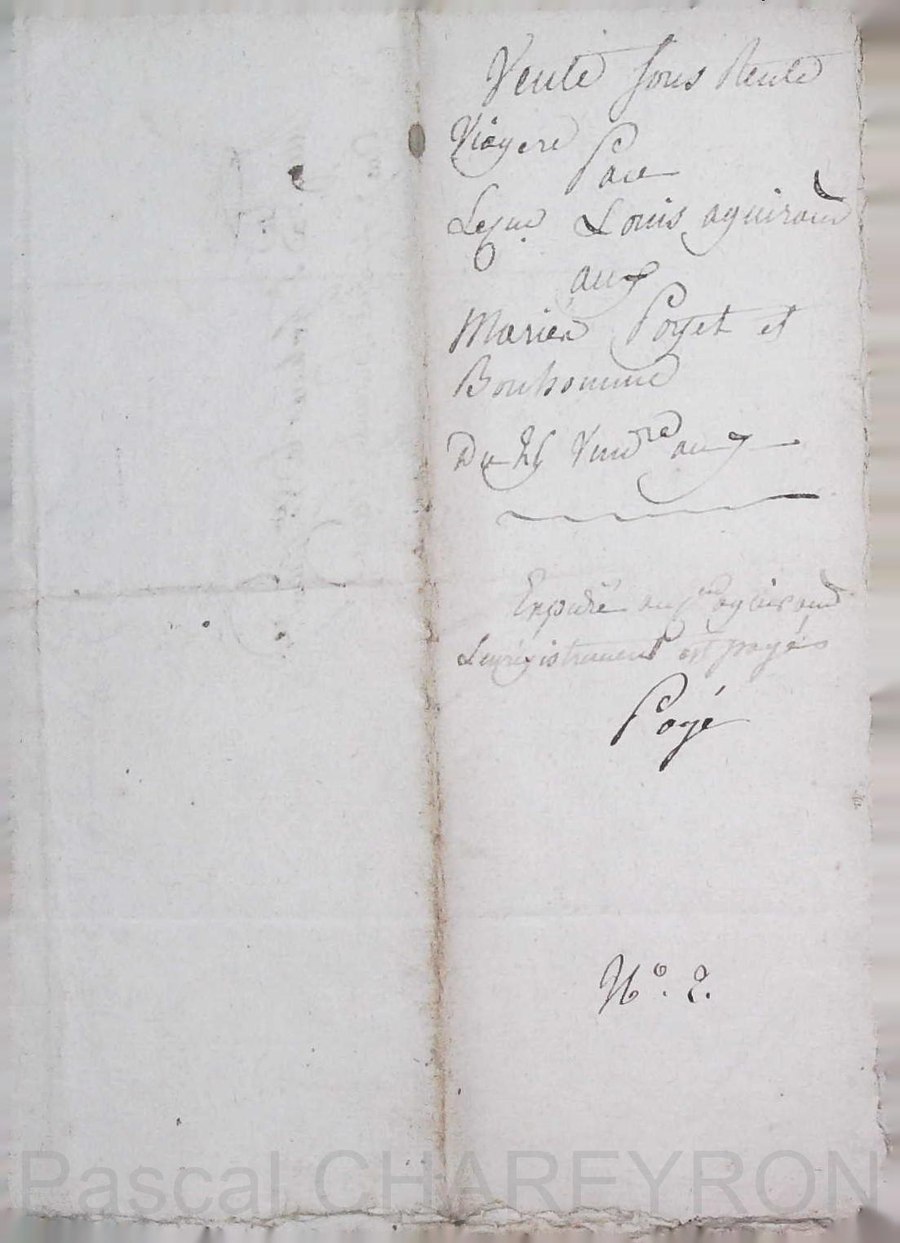 Vente sous Rente
Viagere
Par
Louis aguiraud
aux
Mariés Poyet et
Bonhomme
Du 26 Vend.re an 7
Expédié au aguiraud
Lenregistrement est payé
Payé
N°. 2.
Pascal CHAREYRON